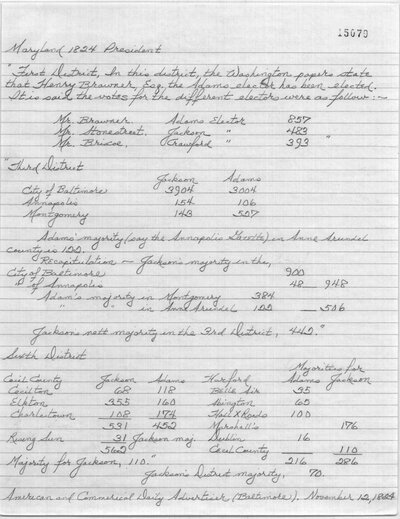 15070
Maryland 1824 President
"First District, In this district, the Washington papers state
that Henry Brawner, Esq. the Adams elector has been elected.
It is said the votes for the different electors were as follow:~
Mr. Brawner. Adams Elector 857
Mr. Stonestreet. Jackson " 483
Mr. Briscoe, Crawford " 393 "
"Third District
Jackson Adams
City of Baltimore 3904 3004
Annapolis 154 106
Montgomery 143 527
Adams' majority (say the Annapolis Gazette) in Anne Arundel
county is 122.
Recapitulation — Jackson's majority in the,
City of Baltimore 900
" " of Annapolis 48 948
Adam's majority in Montgomery 384
" " in Anne Arundel 122 506
Jackson's nett majority in the 3rd District, 442."
Sixth District
Majorities for
Cecil County Jackson Adams Harford Adams Jackson
Cecilton 68 118 Belle Air 35
Elkton 355 160 Abington 65
Charlestown 108 174 Hall X Roads 100
531 452 Marshall's 176
Rising Sun 31 Jackson maj. Dublin 16
562 Cecil County 110
Majority for Jackson, 110." 216 286
Jackson's District majority, 70.
American and Commercial Daily Advertiser (Baltimore). November 12, 1824